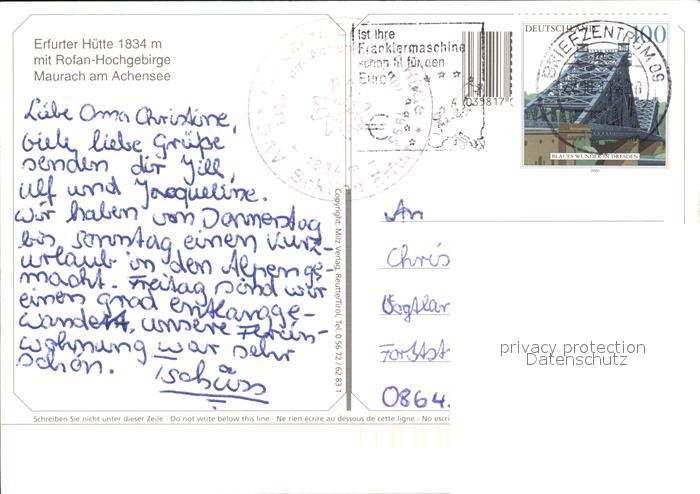 Erfurter Hütte 1834 m
mit Rofan-Hochgebirge
Maurach am Achensee
Liebe Oma Christine,
viele liebe Grüße
senden dir Jill,
Ulf und Jacqueline.
Wir haben von Donnerstag
bis Sonntag einen Kurz-
urlaub in den Alpen ge-
macht. Freitag sind wir
einen Grad entlangge-
wandert, unsere Ferien-
wohnung war sehr
schön. Tschüss
Copyright: Milz Verlag, Reutte/Tirol, Tel. 0 56 72 / 62 83 1
Ist Ihre
Frankiermaschine
schon fit für den
Euro
4 039817
DEUTSCHLAND 100
BRIEFZENTRUM 09
BLAUES WUNDER IN DRESDEN
2000
An
Chris
Vogtlar
Forstst
0864
privacy protection
Datenschutz
Schreiben Sie nicht unter dieser Zeile - Do not write below this line - Ne rien écrire au dessous de cette ligne - No escri